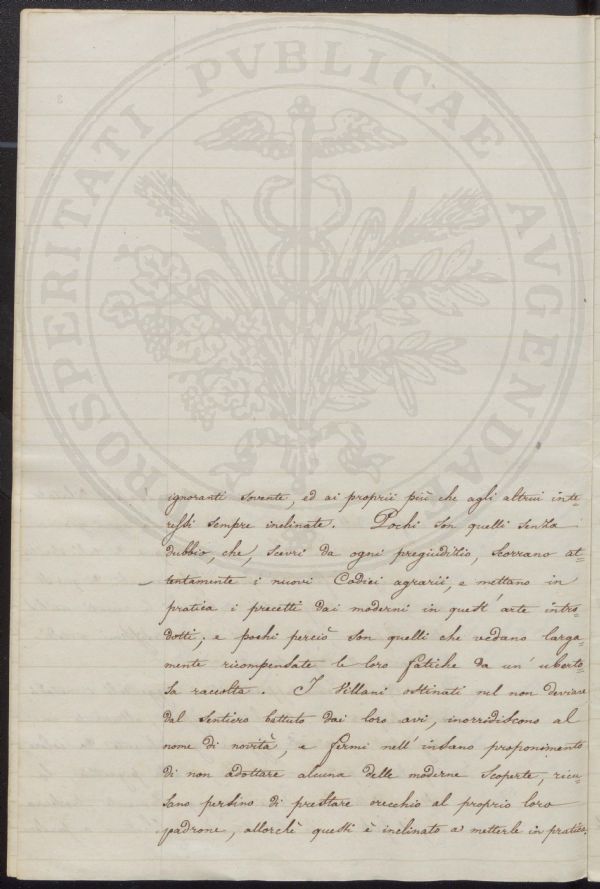 PROSPERITATI PVBLICAE AVGENDAE
ignoranti sovente, ed ai proprii più che agli altrui inte=
ressi sempre inclinate. Pochi son quelli senza
dubbio, che, scevri da ogni pregiudizio, scorrano at=
tentamente i nuovi Codici agrarii, e mettano in
pratica i precetti dai moderni in quest' arte intro=
dotti; e pochi perciò son quelli che vedano larga=
mente ricompensate le loro fatiche da un' uberto=
sa raccolta. I Villani ostinati nel non deviare
dal sentiero battuto dai loro avi, inorridiscono al
nome di novità, e fermi nell' insano proponimento
di non adottare alcuna delle moderne scoperte, ricu=
sano persino di prestare orecchio al proprio loro
padrone, allorchè questi è inclinato a metterle in pratica.